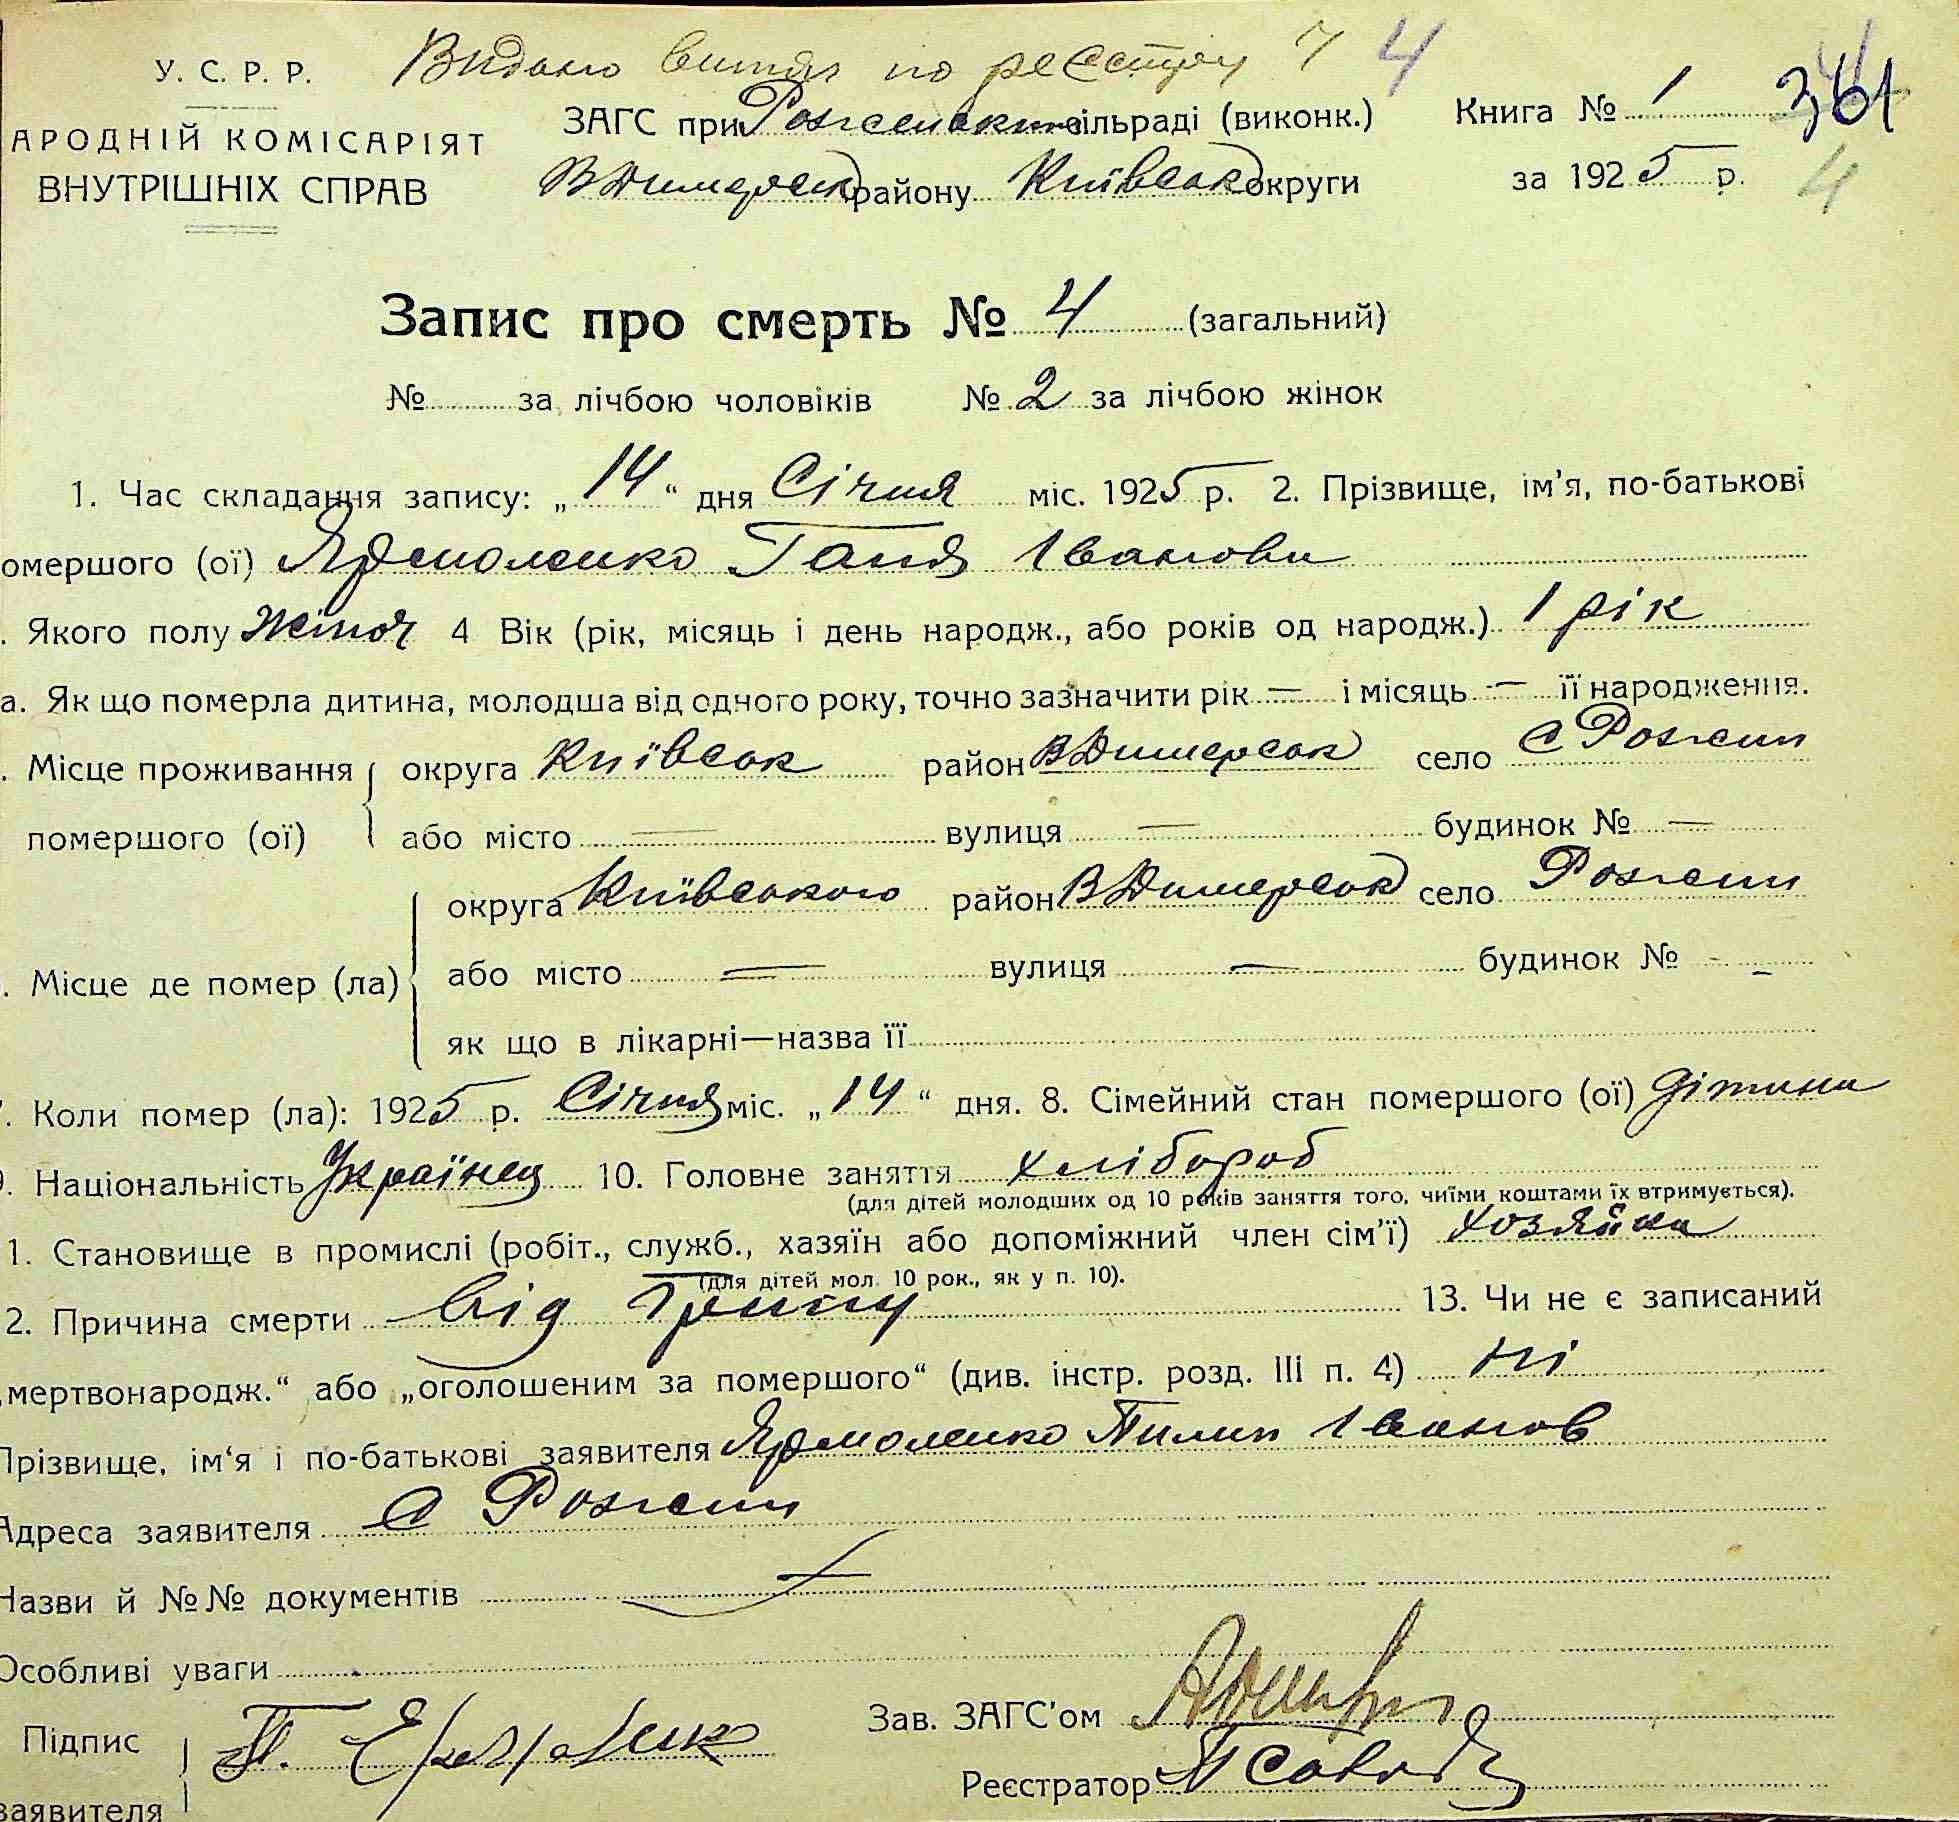 Видано витяг по реєстру 7 4
У. С. Р. Р.
АРОДНІЙ КОМІСАРІЯТ
ВНУТРІШНІХ СПРАВ
ЗАГС при Рожевськ сільраді (виконк.)
В Димерськ району Київськ округи
Книга № 1 361
за 1925 р. 4
Запис про смерть № 4 (загальний)
№ за лічбою чоловіків № 2 за лічбою жінок
1. Час складання запису: „14“ дня Січня міс. 1925 р. 2. Прізвище, ім'я, по-батькові
омершого (ої) Ярмоленко Ганя Іванови
. Якого полу жіноч 4 Вік (рік, місяць і день народж., або років од народж.) 1 рік
а. Як що померла дитина, молодша від одного року, точно зазначити рік — і місяць — її народження.
. Місце проживання округа Київськ район В Димерськ село С Рожни
помершого (ої) або місто — вулиця — будинок № —
округа Київського район В Димерськ село Рожни
. Місце де помер (ла) або місто — вулиця — будинок № - –
як що в лікарні—назва її
7. Коли помер (ла): 1925 р. Січня міс. „14“ дня. 8. Сімейний стан помершого (ої) дітина
9. Національність Українец 10. Головне заняття хлібороб
(для дітей молодших од 10 років заняття того, чиїми коштами їх втримується).
1. Становище в промислі (робіт., служб., хазяїн або допоміжний член сім'ї) хозяйка
(для дітей мол. 10 рок., як у п. 10).
2. Причина смерти від Грипу 13. Чи не є записаний
„мертвонародж.“ або „оголошеним за помершого“ (див. інстр. розд. III п. 4) ні
Прізвище, ім'я і по-батькові заявителя Ярмоленко Пилип Іванов
Адреса заявителя С Рожни
Назви й №№ документів
Особливі уваги
Підпис
заявителя
Зав. ЗАГС'ом
Реєстратор